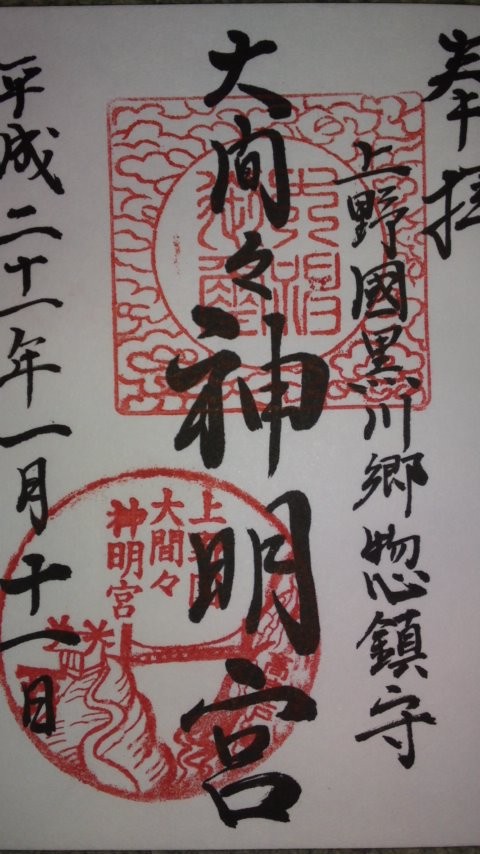 奉拝
上野國黒川郷惣鎮守
大間々神明宮
平成二十一年一月十一日
上野國
大間々
神明宮